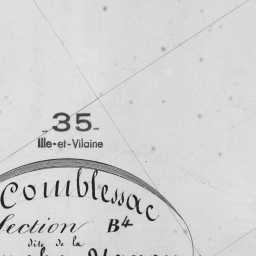 35
Ille-et-Vilaine
Comblessac
Section B4
dite de la